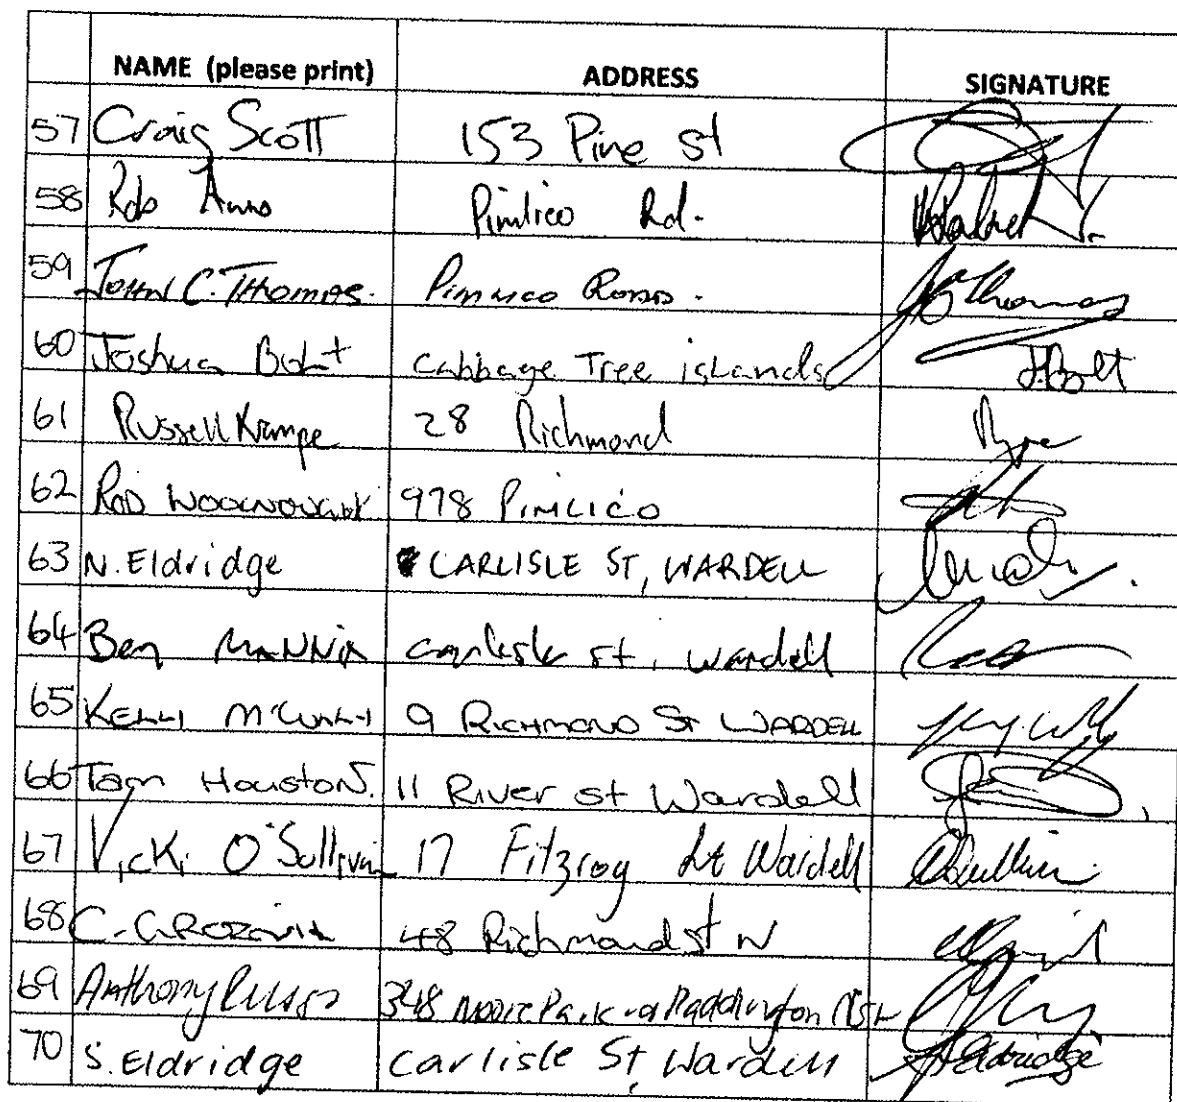 NAME (please print) ADDRESS SIGNATURE
57 Craig Scott 153 Pine St
58 Rob Pimlico Rd.
59 JOHN C. THOMAS. Pimlico Road. JCThomas
60 Joshua Bolt Cabbage Tree islands J.Bolt
61 Russell Krampe 28 Richmond
62 ROD 978 PIMLICO
63 N. Eldridge CARLISLE ST, WARDELL
64 Ben carlisle st, wardell
65 KELLY 9 RICHMOND ST WARDELL
66 Tam Houston. 11 River st Wardell
67 Vicki O'Sullivan 17 Fitzroy St Wardell O'Sullivan
68 C. 48 Richmond st W
69 Anthony 348 Moore Park rd Paddington NSW
70 S. Eldridge Carlisle St, Wardell Eldridge